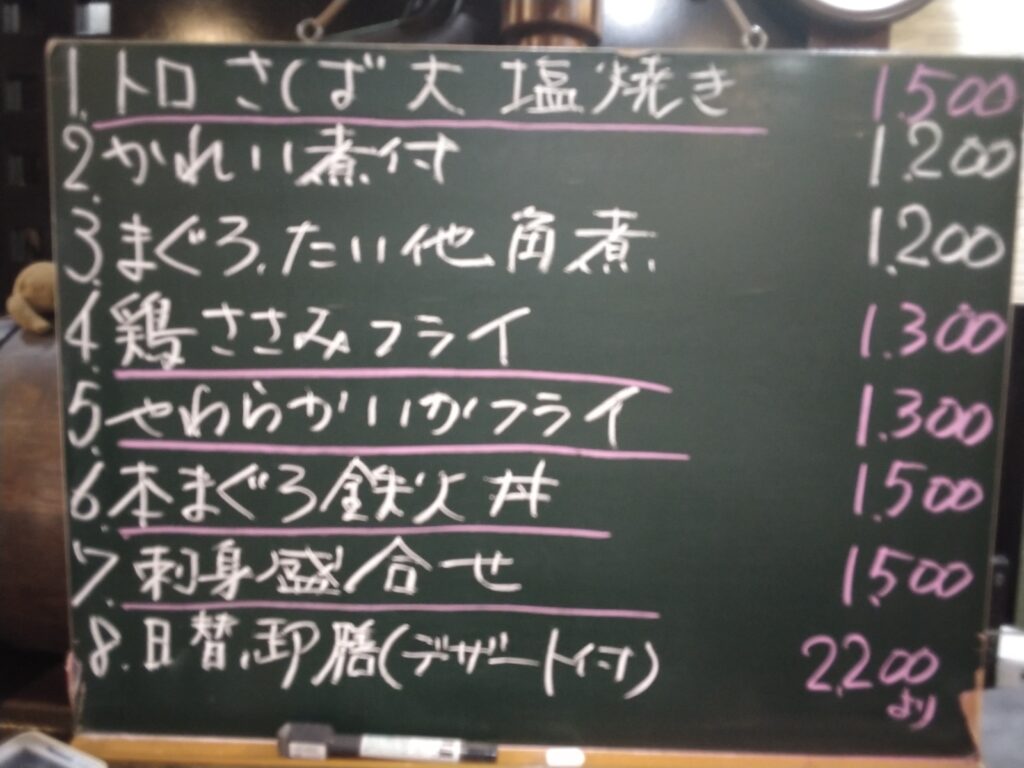 1. トロさば大 塩焼き 1,500
2. かれい煮付 1,200
3. まぐろ、たい他角煮 1,200
4. 鶏ささみフライ 1,300
5. やわらかいかフライ 1,300
6. 本まぐろ鉄火丼 1,500
7. 刺身盛合せ 1,500
8. 日替御膳(デザート付) 2,200
より